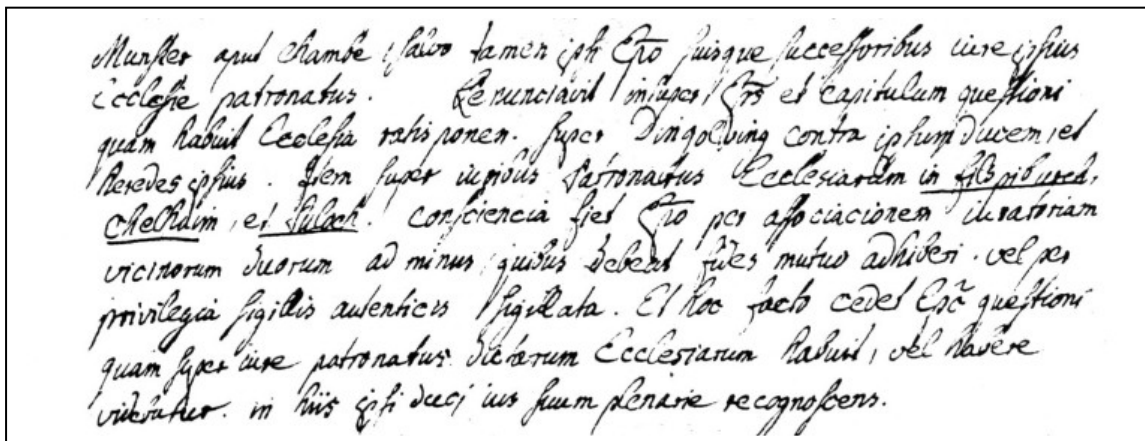 Munster aput Chambe, salvo tamen ipsi Epo suisque successoribus iure ipsius
Ecclesie patronatus. Renunciavit insuper Eps et Capitulum questioni
quam habuit Ecclesia ratisponen. super Dingolving contra ipsum ducem, et
heredes ipsius. Item super iuribus Patronatus Ecclesiarum in
Chelhaim, et consciencia fiet Epo per associacionem iuratoriam
vicinorum duorum ad minus, quibus debent fides mutuo adhiberi. vel per
privilegia sigillis autenticis sigillata. Et hoc facto cedet Epc questioni
quam super iure patronatus dictarum Ecclesiarum habuit, vel habere
videbatur. in hiis ipsi duci ius suum plenarie recognoscens.